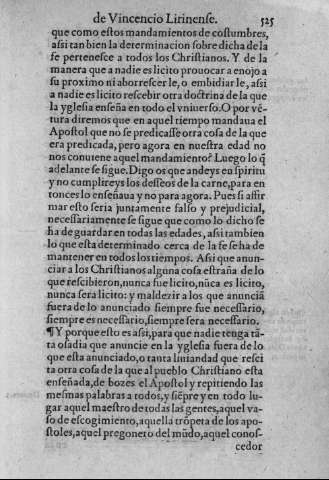 de Vincencio Lirinense. 525
que como estos mandamientos de costumbres,
assi tan bien la determinacion sobre dicha de la
fe pertenesce a todos los Christianos. Y de la
manera que a nadie es licito prouocar a enojo a
su proximo ni aborrescerle, o embidiarle, assi
a nadie es licito rescebir otra doctrina de la que
la yglesia enseña en todo el vniuerso. O por vẽ-
tura diremos que en aquel tiempo mandaua el
Apostol que no se predicasse otra cosa de la que
era predicada, pero agora en nuestra edad no
nos conuiene aquel mandamiento? Luego lo q̃
adelante se sigue. Digo os que andeys en spiritu
y no cumplireys los desseos de la carne, para en
tonces lo enseñaua y no para agora. Pues si affir
mar esto seria juntamente falso y prejudicial,
necessariamente se sigue que como lo dicho se
ha de guardar en todas las edades, assi tambien
lo que esta determinado cerca de la fe se ha de
mantener en todos los tiempos. Assi que anun-
ciar a los Christianos alguna cosa estraña de lo
que rescibieron, nunca fue licito, nũca es licito,
nunca sera licito: y maldezir a los que anunciã
fuera de lo anunciado siempre fue necessario,
siempre es necessario, siempre sera necessario.
¶ Y porque esto es assi, para que nadie tenga tã-
ta osadia que anuncie en la yglesia fuera de lo
que esta anunciado, o tanta liuiandad que resci
ta otra cosa de la que al pueblo Christiano esta
enseñada, de bozes el Apostol y repitiendo las
mesmas palabras a todos, y siẽpre y en todo lu-
gar aquel maestro de todas las gentes, aquel va-
so de escogimiento, aquella trõpeta de los apo-
stoles, aquel pregonero del mũdo, aquel conos-
cedor